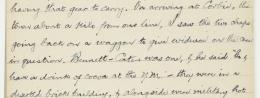 having that gear to carry. On arriving at Corbie, the
town about a mile from our line, I saw the two chaps
going back on a waggon to give evidence on the case
in question. Bennett-Cates was one, & he said "
have a drink of cocoa at the Y.M. — they were in a
deserted brick building, & alongside were military hot